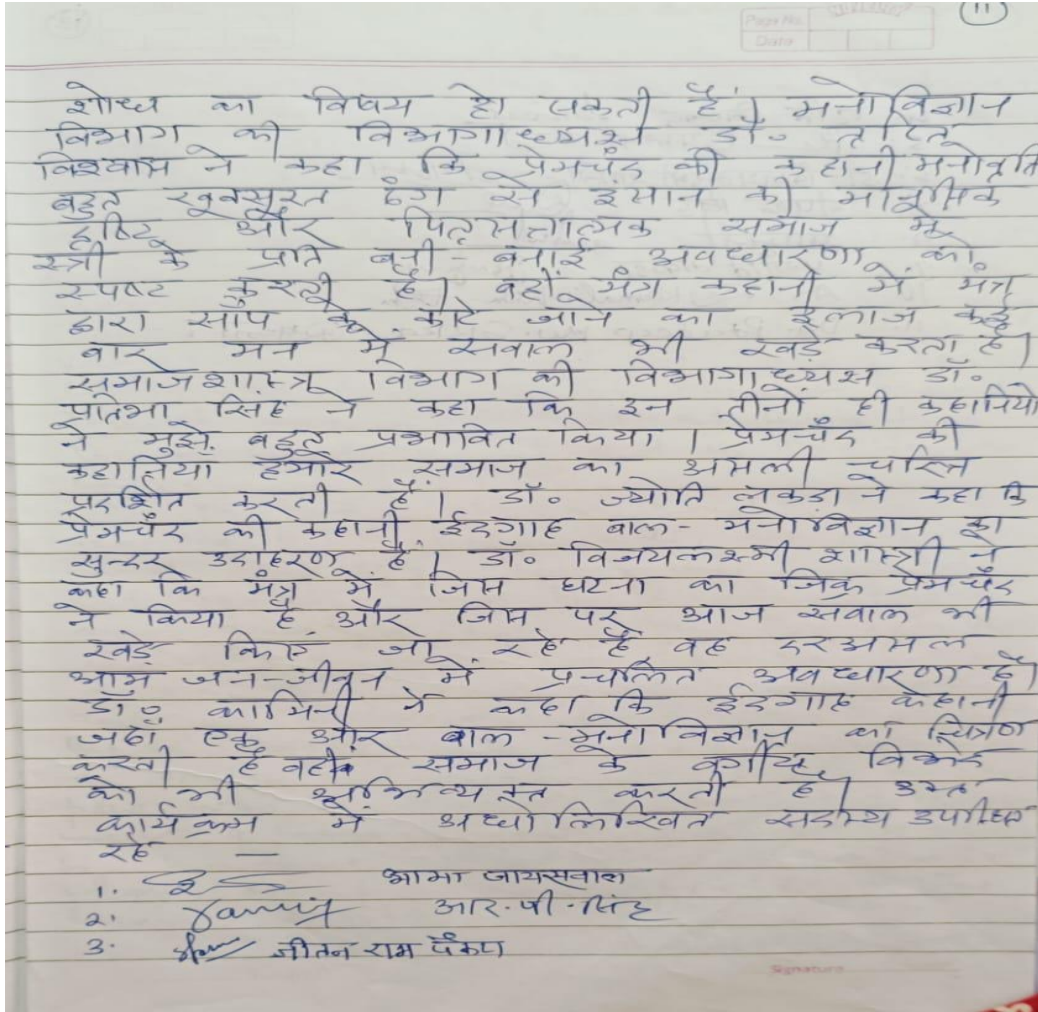 11
Page No.
Date
शोध का विषय हो सकती हैं। मनोविज्ञान
विभाग की विभागाध्यक्ष डॉ. तृप्ति
विश्वास ने कहा कि प्रेमचंद की कहानी मनोवृत्ति
बहुत खूबसूरत ढंग से इंसान की मानसिक
दृष्टि और पितृसत्तात्मक समाज में
स्त्री के प्रति बनी-बनाई अवधारणा को
स्पष्ट करती है। वहीं मंत्र कहानी में मंत्र
द्वारा साँप के काटे जाने का इलाज कई
बार मन में सवाल भी खड़े करता है।
समाजशास्त्र विभाग की विभागाध्यक्ष डॉ.
प्रतिभा सिंह ने कहा कि इन तीनों ही कहानियों
ने मुझे बहुत प्रभावित किया। प्रेमचँद की
कहानियाँ हमारे समाज का असली चरित्र
प्रदर्शित करती हैं। डॉ. ज्योति लकड़ा ने कहा कि
प्रेमचँद की कहानी ईदगाह बाल-मनोविज्ञान का
सुन्दर उदाहरण है। डॉ. विजयलक्ष्मी शास्त्री ने
कहा कि मंत्र में जिस घटना का जिक्र प्रेमचँद
ने किया है और जिस पर आज सवाल भी
खड़े किए जा रहे हैं वह दरअसल
आम जन-जीवन में प्रचलित अवधारणा है।
डॉ. कामिनी ने कहा कि ईदगाह कहानी
जहाँ एक ओर बाल-मनोविज्ञान का चित्रण
करती है वहीं समाज के वर्गीय विभेद
को भी अभिव्यक्त करती है। उक्त
कार्यक्रम में अधोलिखित सदस्य उपस्थित
रहे —
1. आभा जायसवाल
2. आर. पी. सिंह
3. जीतन राम पैंकरा
Signature